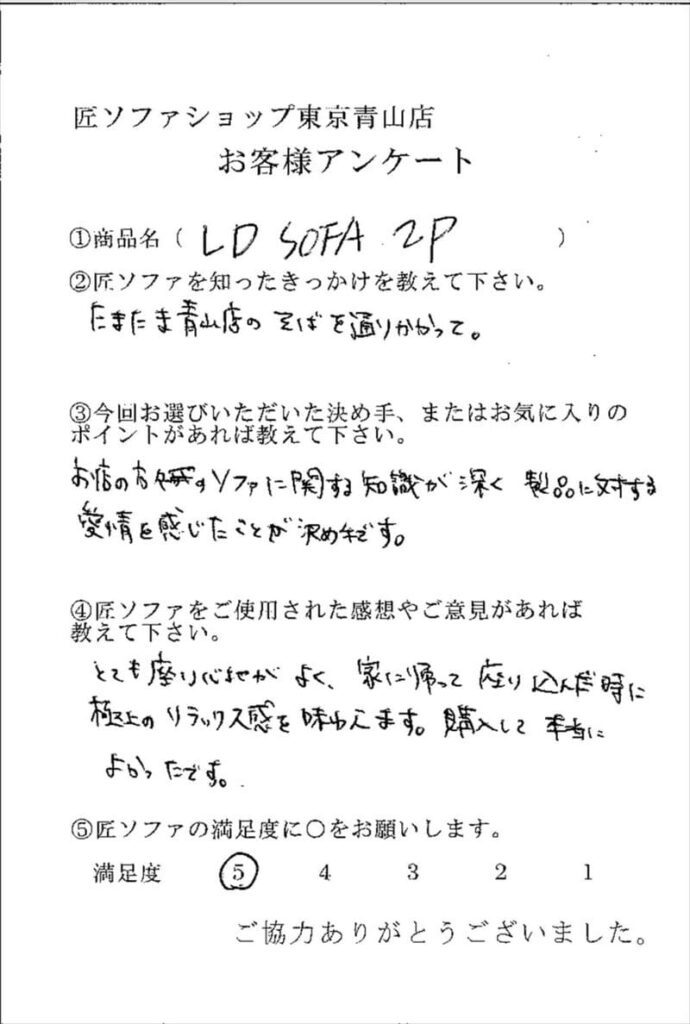 匠ソファショップ東京青山店
お客様アンケート
①商品名（ LD SOFA 2P ）
②匠ソファを知ったきっかけを教えて下さい。
たまたま青山店のそばを通りかかって。
③今回お選びいただいた決め手、またはお気に入りの
ポイントがあれば教えて下さい。
お店の方々のソファに関する知識が深く 製品に対する
愛情を感じたことが決め手です。
④匠ソファをご使用された感想やご意見があれば
教えて下さい。
とても座り心地がよく、家に帰って座り込んだ時に
極上のリラックス感を味わえます。購入して本当に
よかったです。
⑤匠ソファの満足度に○をお願いします。
満足度 5 4 3 2 1
ご協力ありがとうございました。